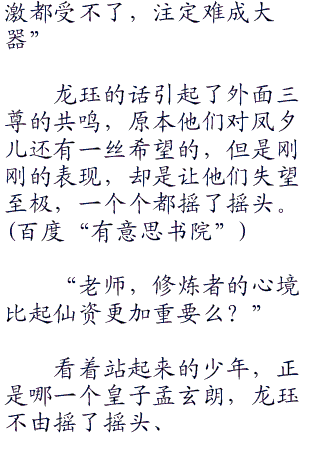 激都受不了，注定难成大
器”
龙珏的话引起了外面三
尊的共鸣，原本他们对凤夕
儿还有一丝希望的，但是刚
刚的表现，却是让他们失望
至极，一个个都摇了摇头。
(百度“有意思书院”)
“老师，修炼者的心境
比起仙资更加重要么？”
看着站起来的少年，正
是哪一个皇子孟玄朗，龙珏
不由摇了摇头、